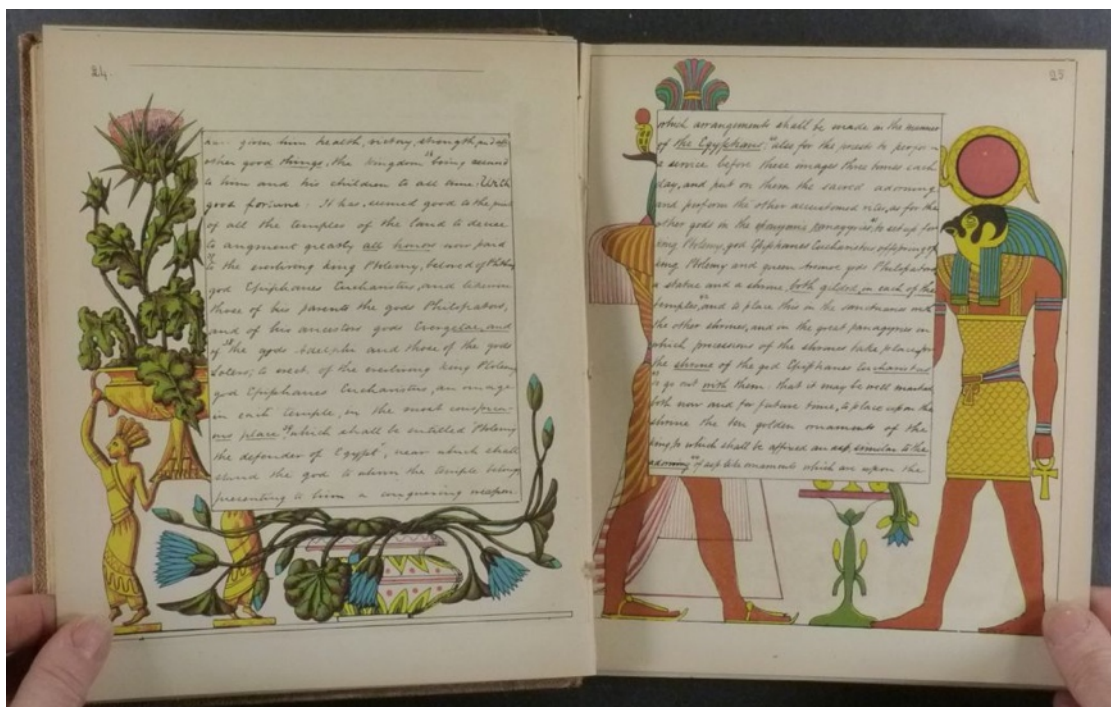 24.
given him health, victory, strength, and all
other good things, the kingdom being assured
to him and his children to all time. With
good fortune: It has seemed good to the priests
of all the temples of the land to decree
to augment greatly all honors now paid
to the everliving king Ptolemy, beloved of Phthah
god Epiphanes Eucharistus, and likewise
those of his parents the gods Philopators,
and of his ancestors gods Evergetae, and
of 38 the gods Adelphi and those of the gods
Soters; to erect of the everliving king Ptolemy
god Epiphanes Eucharistus, an image
in each temple, in the most conspicu-
ous place 39 which shall be entitled "Ptolemy
the defender of Egypt", near which shall
stand the god to whom the temple belongs
presenting to him a conquering weapon
25
which arrangements shall be made in the manner
of the Egyptians; 40 also for the priests to perform
a service before these images three times each
day, and put on them the sacred adorning
and perform the other accustomed rites, as for the
other gods in the panagyries, 41 to set up for
king Ptolemy, god Epiphanes Eucharistus offspring of
king Ptolemy and queen Arsinoe gods Philopators
a statue and a shrine, both gilded, in each of the
temples, 42 and to place this in the sanctuaries with
the other shrines, and in the great panagyries in
which processions of the shrines take place for
the shrine of the god Epiphanes Eucharistus
43 to go out with them: that it may be well marked
both now and for future time, to place upon the
shrine the ten golden ornaments of the
king, to which shall be affixed an asp, similar to the
adorning 44 of asp like ornaments which are upon the